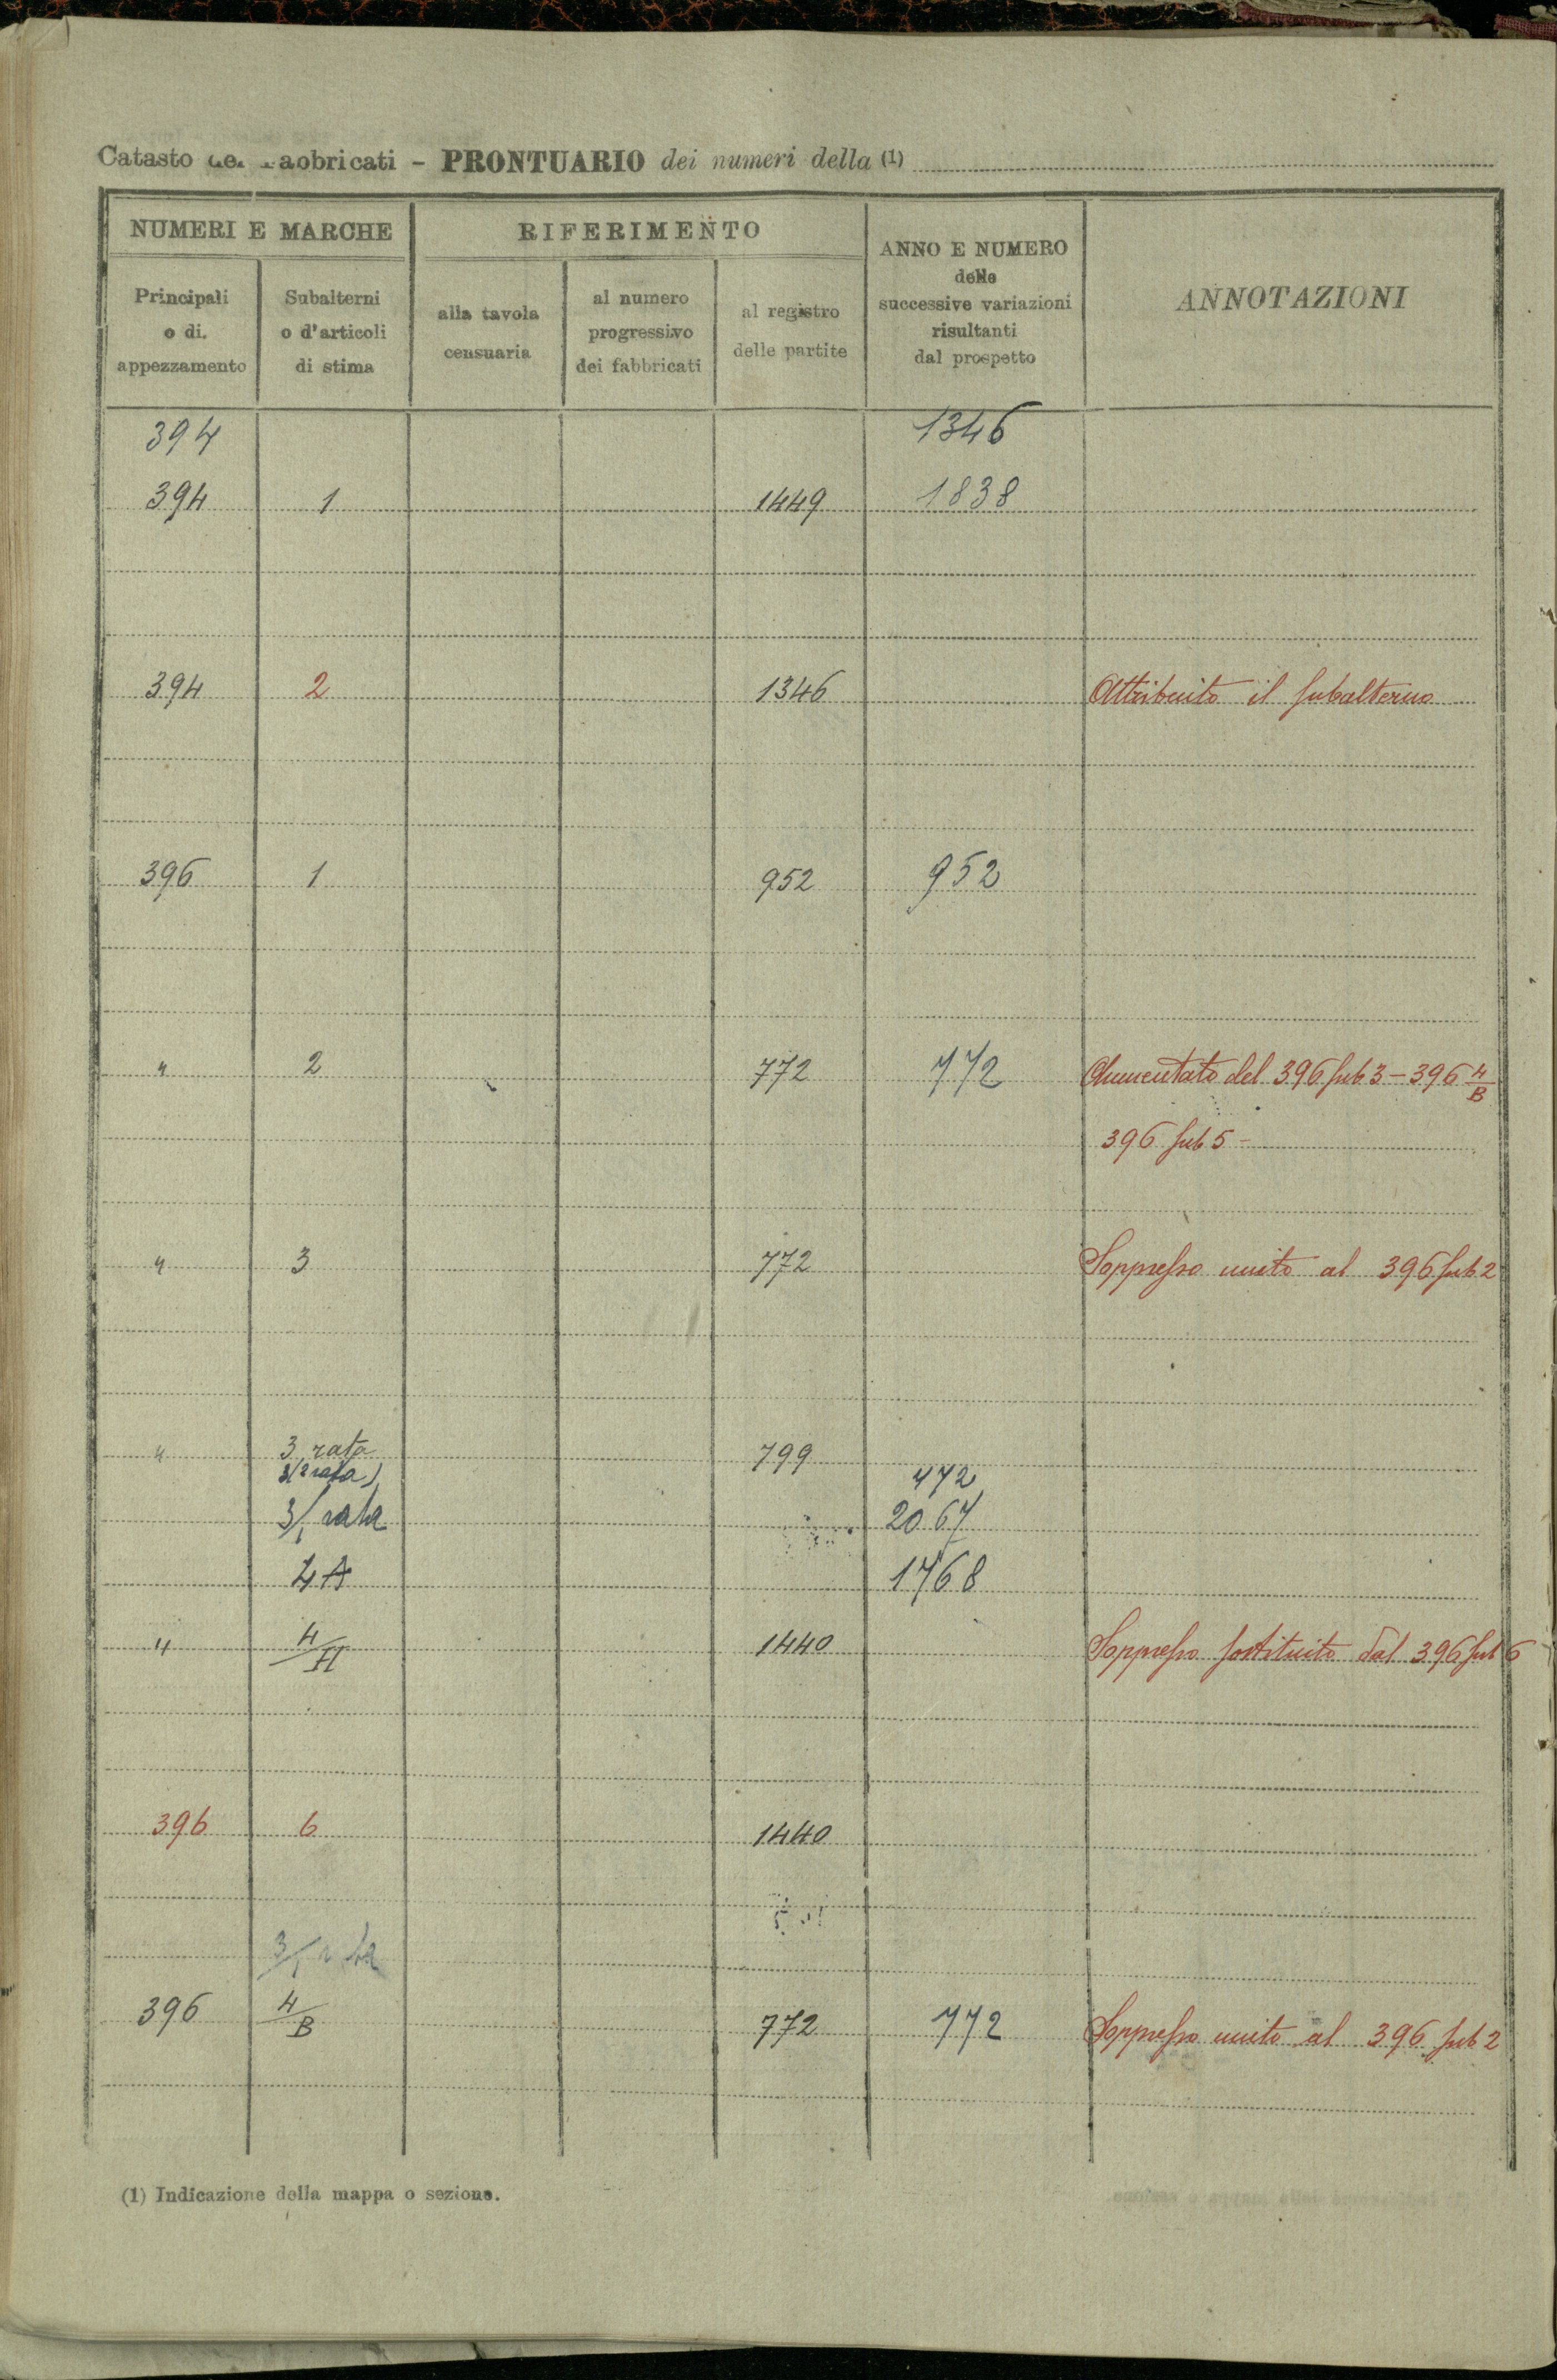 Catasto dei Fabbricati - PRONTUARIO dei numeri della (1)
NUMERI E MARCHE
RIFERIMENTO
ANNO E NUMERO
delle
successive variazioni
risultanti
dal prospetto
ANNOTAZIONI
Principali
o di.
appezzamento
Subalterni
o d'articoli
di stima
alla tavola
censuaria
al numero
progressivo
dei fabbricati
al registro
delle partite
394 1346
394 1 1449 1838
394 2 1346 Attribuito il subalterno
396 1 952 952
" 2 772 772 Aumentato del 396 sub 3 - 396 4/B
396 sub 5 -
" 3 772 Soppresso unito al 396 sub 2
" 3 rata 799
3 (2 rata) 472
3/1 rata 2067
4A 1768
" 4/A 1440 Soppresso sostituito dal 396 sub 6
396 6 1440
3/1
396 4/B 772 772 Soppresso unito al 396 sub 2
(1) Indicazione della mappa o sezione.